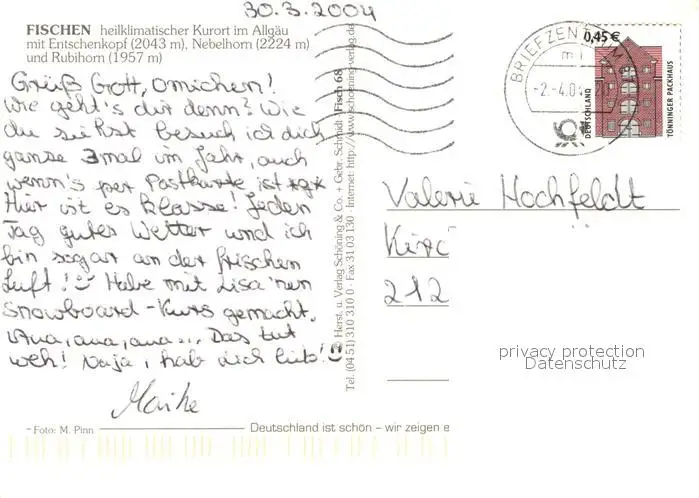 30.3.2004
FISCHEN heilklimatischer Kurort im Allgäu
mit Entschenkopf (2043 m), Nebelhorn (2224 m)
und Rubihorn (1957 m)
Grüß Gott, Omichen!
Wie geht's dir denn? Wie
du siehst besuch ich dich
ganze 3mal im Jahr, auch
wenn's per Postkarte ist *g*
Hier ist es klasse! Jeden
Tag gutes Wetter und ich
bin sogar an der frischen
Luft! Habe mit Lisa 'nen
Snowboard-Kurs gemacht.
Aua, aua, aua... Das tut
weh! Naja, hab dich lieb!
Maike
Foto: M. Pinn
Deutschland ist schön – wir zeigen e
© Herst. u. Verlag Schöning & Co. + Gebr. Schmidt Fisch 68
Tel. (04 51) 310 310 0 · Fax 31 03 130 · Internet: http://www.schoening-verlag.de
BRIEFZENTRUM
-2.-4.04
0,45 €
DEUTSCHLAND
TÖNNINGER PACKHAUS
Valerie Hochfeldt
Kirc
212
privacy protection
Datenschutz